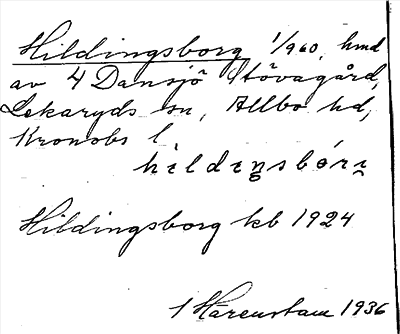 Hildingsborg 1/960, hmd
av 4 Dansjö Stövagård,
Lekaryds sn, Allbo hd,
Kronobs l
hildiŋsbórị
Hildingsborg kb 1924
I Härenstam 1936